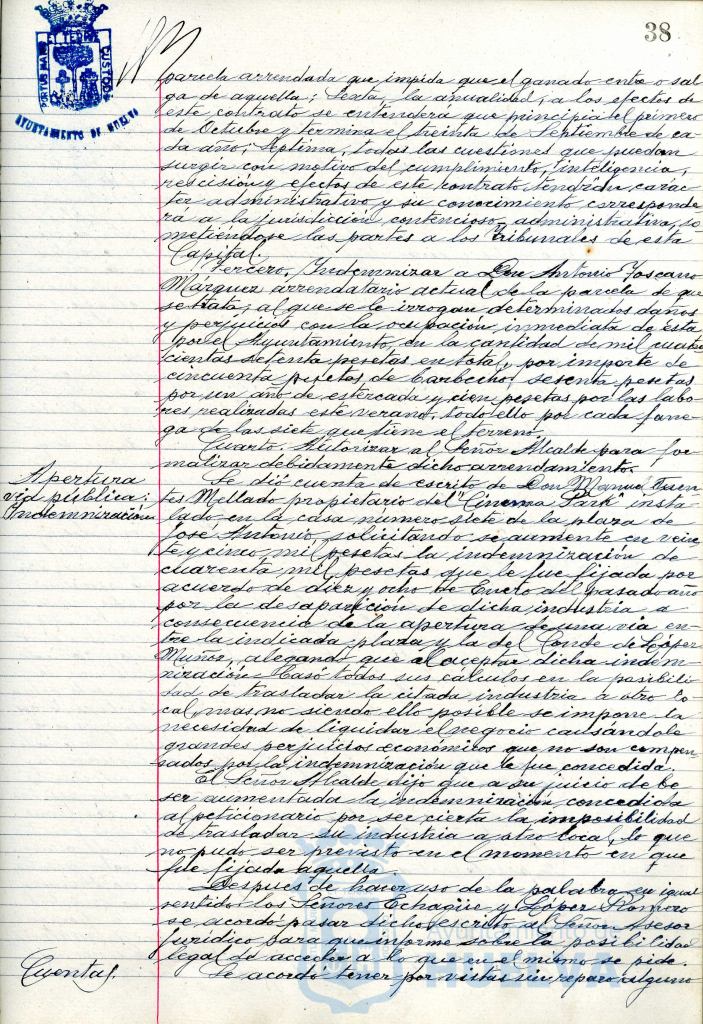 38
PORTUS MARIS ET TERRE CUSTODIA
AYUNTAMIENTO DE HUELVA
parcela arrendada que impida que el ganado entre o sal
ga de aquella; Sexta, la anualidad, a los efectos de
este contrato se entenderá que principia el primero
de Octubre y termina el treinta de Septiembre de ca
da año; Septima, todas las cuestiones que puedan
surgir con motivo del cumplimiento, inteligencia,
rescisión y efectos de este contrato tendrán carác
ter administrativo y su conocimiento corresponde
rá a la jurisdicción contencioso-administrativa, so
metiéndose las partes a los Tribunales de esta
Capital.
Tercero. Indemnizar a Don Antonio Toscano
Márquez arrendatario actual de la parcela de que
se trata, al que se le irrogan determinados daños
y perjuicios con la ocupación inmediata de ésta
por el Ayuntamiento, en la cantidad de mil cuatro
cientas setenta pesetas en total, por importe de
cincuenta pesetas de barbecho, sesenta pesetas
por un año de estercada y cien pesetas por las labo
res realizadas este verano, todo ello por cada fane
ga de las siete que tiene el terreno.
Cuarto. Autorizar al Señor Alcalde para for
malizar debidamente dicho arrendamiento.
Apertura
vía pública:
Indemnización
Se dió cuenta de escrito de Don Manuel Fuen
tes Mellado propietario del "Cinema Park" insta
lado en la casa número siete de la plaza de
José Antonio, solicitando se aumente en vein
te y cinco mil pesetas la indemnización de
cuarenta mil pesetas que le fue fijada por
acuerdo de diez y ocho de Enero del pasado año
por la desaparición de dicha industria a
consecuencia de la apertura de una vía en
tre la indicada plaza y la del Conde de López
Muñoz, alegando que al aceptar dicha indem
nización basó todos sus cálculos en la posibili
dad de trasladar la citada industria a otro lo
cal, mas no siendo ello posible se impone la
necesidad de liquidar el negocio causándole
grandes perjuicios económicos que no son compen
sados por la indemnización que le fue concedida.
El Señor Alcalde dijo que a su juicio debe
ser aumentada la indemnización concedida
al peticionario por ser cierta la imposibilidad
de trasladar su industria a otro local, lo que
no pudo ser previsto en el momento en que
fue fijada aquella.
Despues de hacer uso de la palabra en igual
sentido los Señores Echagüe y López Romero
se acordó pasar dicho escrito al Señor Asesor
Jurídico para que informe sobre la posibilidad
legal de acceder a lo que en el mismo se pide.
Cuentas.
Se acordó tener por vistas sin reparo alguno
Ayuntamiento de
HUELVA